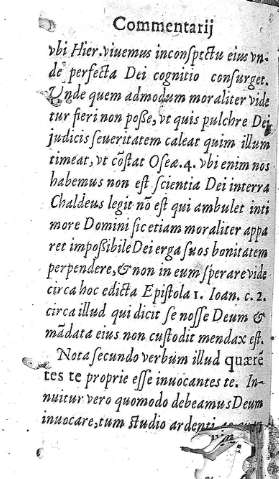 Commentarij
vbi Hier. viuemus inconspectu eius vn-
de perfecta Dei cognitio consurget.
Vnde quem admodum moraliter vide
tur fieri non poße, vt quis pulchre Dei
judicis seueritatem caleat quim illum
timeat, vt cõstat Oseæ. 4. vbi enim nos
habemus non est scientia Dei interra
Chaldeus legit nõ est qui ambulet inti
more Domini sic etiam moraliter appa
ret impoßibile Dei erga suos bonitatem
perpendere, & non in eum sperare vide
circa hoc edicta Epistola 1. Ioan. c. 2.
circa illud qui dicit se nosse Deum &
mãdata eius non custodit mendax est.
Nota secundo verbum illud quæté
tes te proprie esse inuocantes te. In-
nuitur vero quomodo debeamus Deum
inuocare, tum studio ardenti